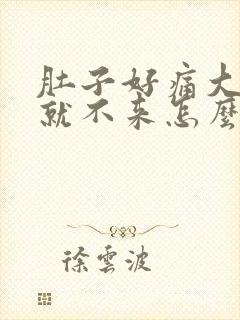 肚子好痛大
就不来怎麼
徐雲波